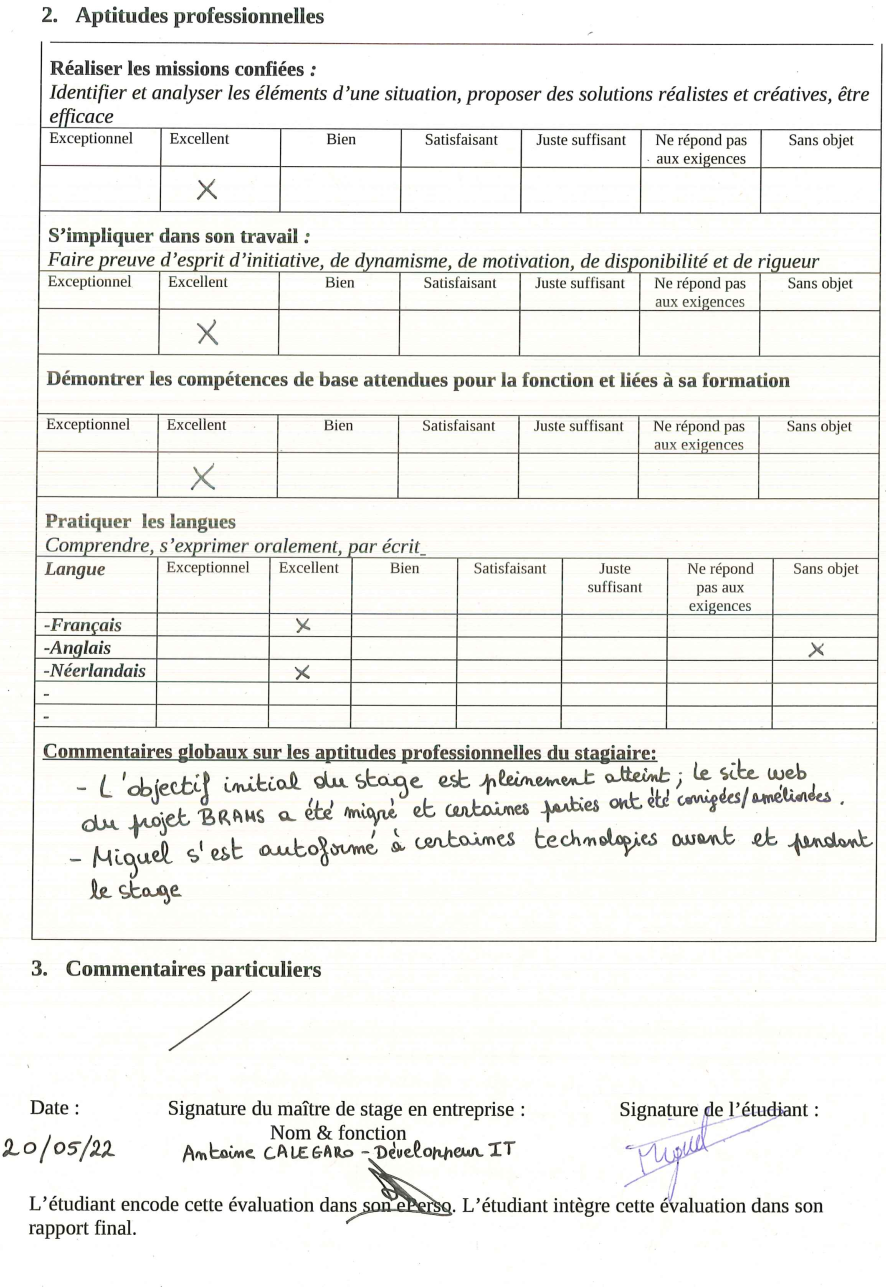 2. Aptitudes professionnelles
Réaliser les missions confiées :
Identifier et analyser les éléments d'une situation, proposer des solutions réalistes et créatives, être
efficace
Exceptionnel Excellent Bien Satisfaisant Juste suffisant Ne répond pas
aux exigences Sans objet
X
S'impliquer dans son travail :
Faire preuve d'esprit d'initiative, de dynamisme, de motivation, de disponibilité et de rigueur
Exceptionnel Excellent Bien Satisfaisant Juste suffisant Ne répond pas
aux exigences Sans objet
X
Démontrer les compétences de base attendues pour la fonction et liées à sa formation
Exceptionnel Excellent Bien Satisfaisant Juste suffisant Ne répond pas
aux exigences Sans objet
X
Pratiquer les langues
Comprendre, s'exprimer oralement, par écrit_
Langue Exceptionnel Excellent Bien Satisfaisant Juste
suffisant Ne répond
pas aux
exigences Sans objet
-Français X
-Anglais X
-Néerlandais X
-
-
Commentaires globaux sur les aptitudes professionnelles du stagiaire:
- L'objectif initial du stage est pleinement atteint ; le site web
du projet BRAMS a été migré et certaines parties ont été corrigées/améliorées.
- Miguel s'est autoformé à certaines technologies avant et pendant
le stage
3. Commentaires particuliers
Date : Signature du maître de stage en entreprise : Signature de l'étudiant :
Nom & fonction
20/05/22 Antoine CALEGARO - Développeur IT Miguel
L'étudiant encode cette évaluation dans son ePerso. L'étudiant intègre cette évaluation dans son
rapport final.